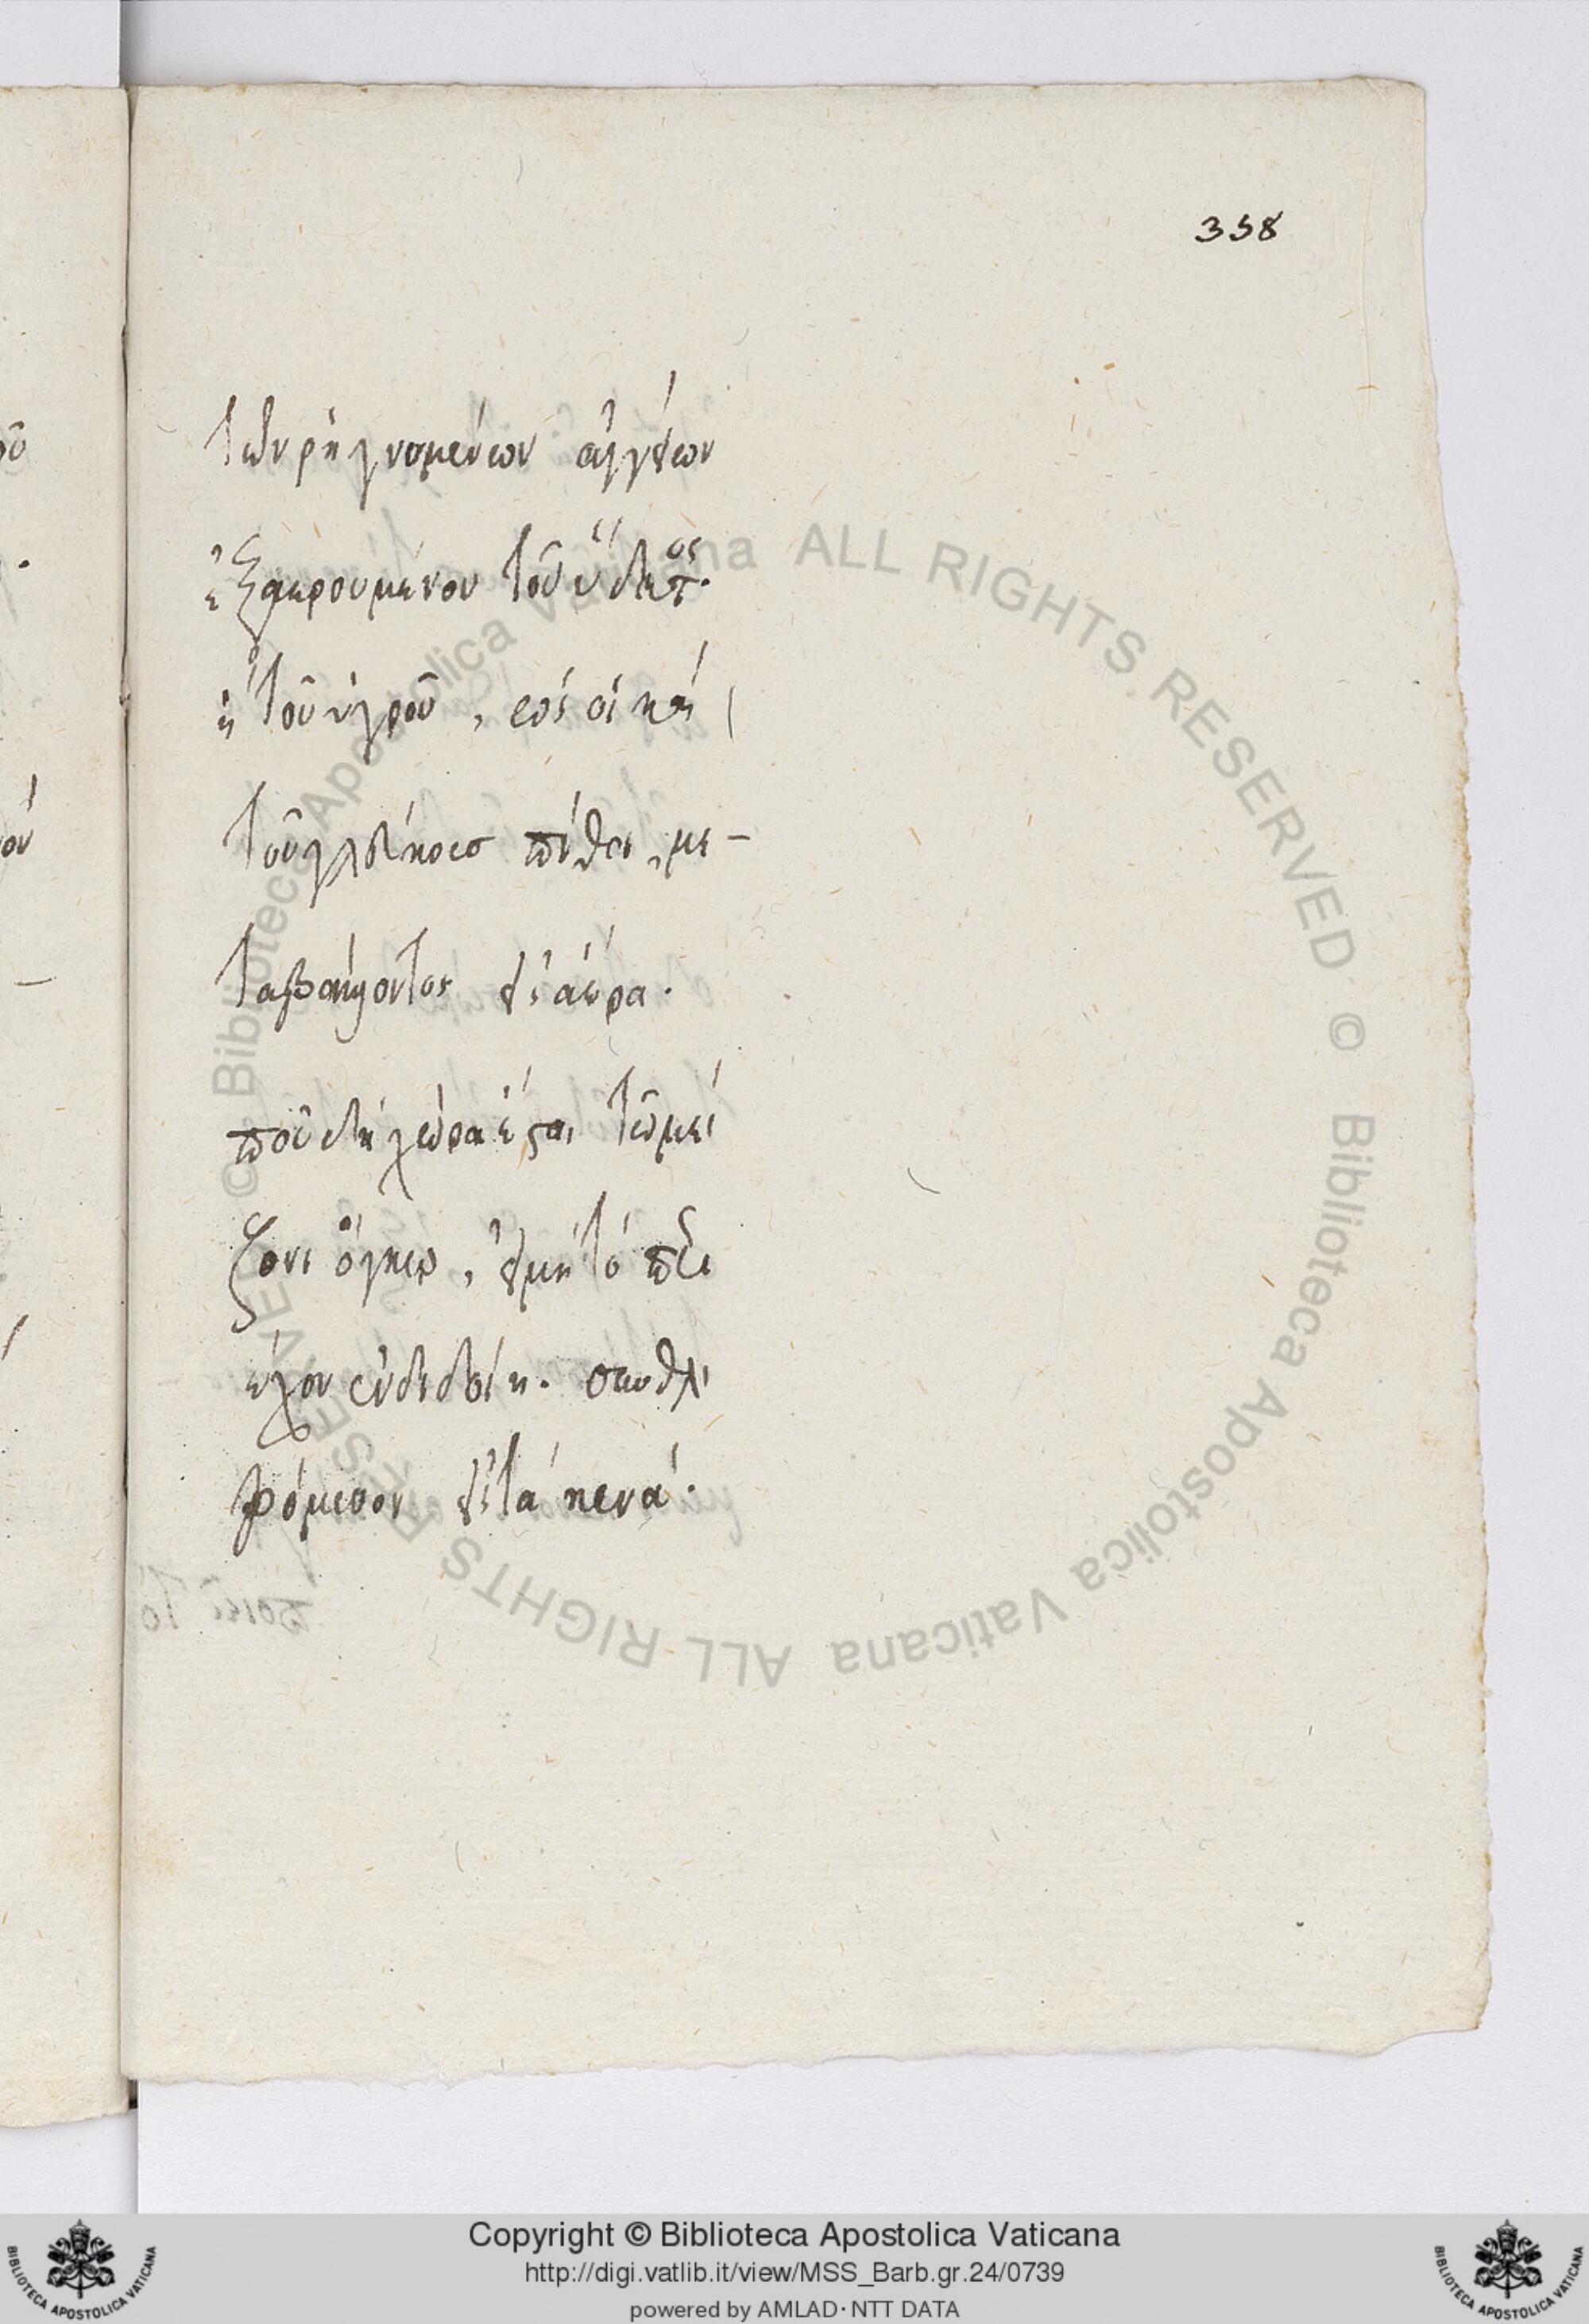 338
τῶν ῥηγνυμένων ἀγγείων
ἐξαερουμένου τοῦ ὕδατος.
ἢ τοῦ ὑγροῦ, ὡς οἱ καὶ
τοῦ γλεύκους πίθοι, με-
ταβαίνοντος εἰς ἀέρα.
ποῦ δὴ χώρα ἔσται τῷ μεί
ζονι ὄγκῳ, εἰ μὴ τὸ περι
έχον ἐνδιδοίη. συνθλι
βόμενον εἰς τὰ κενά.
Copyright © Biblioteca Apostolica Vaticana
http://digi.vatlib.it/view/MSS_Barb.gr.24/0739
powered by AMLAD·NTT DATA
BIBLIOTECA APOSTOLICA VATICANA
BIBLIOTECA APOSTOLICA VATICANA
© Biblioteca Apostolica Vaticana ALL RIGHTS RESERVED © Biblioteca Apostolica Vaticana ALL RIGHTS RESERVED